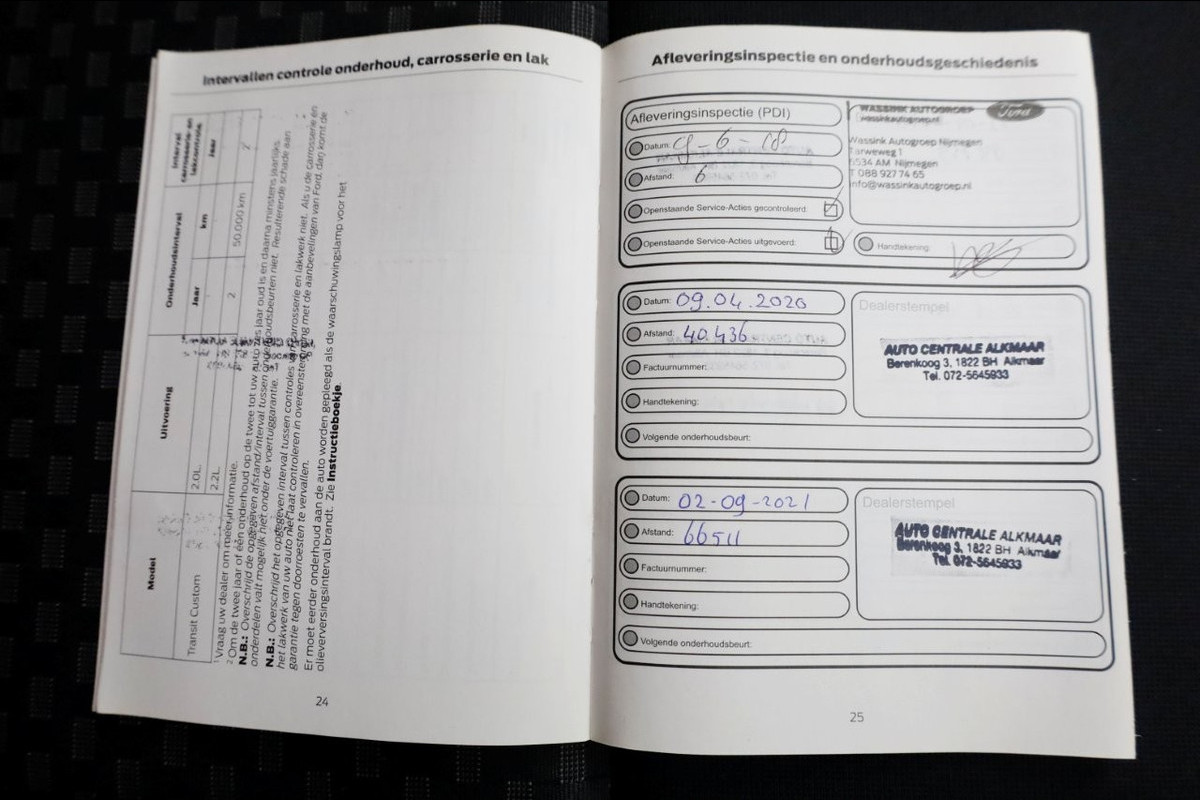 Intervallen controle onderhoud, carrosserie en lak
Model
Uitvoering
Onderhoudsinterval
Interval carrosserie- en lakcontrole
Jaar
km
Jaar
Transit Custom
2.0L
2
50.000 km
2.2L
1 Vraag uw dealer om meer informatie.
2 Om de twee jaar of één onderhoud op de twee tot uw auto zes jaar oud is en daarna minstens jaarlijks.
N.B.: Overschrijd de opgegeven afstand/interval tussen onderhoudsbeurten niet. Resulterende schade aan
onderdelen valt mogelijk niet onder de voertuiggarantie.
N.B.: Overschrijd het opgegeven interval tussen controles van carrosserie en lakwerk niet. Als u de carrosserie en
het lakwerk van uw auto niet laat controleren in overeenstemming met de aanbevelingen van Ford, dan komt de
garantie tegen doorroesten te vervallen.
Er moet eerder onderhoud aan de auto worden gepleegd als de waarschuwingslamp voor het
olieverversingsinterval brandt. Zie Instructieboekje.
24
Afleveringsinspectie en onderhoudsgeschiedenis
Afleveringsinspectie (PDI)
Datum: 9-6-18
Afstand: 6
Openstaande Service-Acties gecontroleerd:
Openstaande Service-Acties uitgevoerd:
WASSINK AUTOGROEP
wassinkautogroep.nl
Ford
Wassink Autogroep Nijmegen
Tarweweg 1
6534 AM Nijmegen
T 088 927 74 65
info@wassinkautogroep.nl
Handtekening:
Datum: 09.04.2020
Afstand: 40.436
Factuurnummer:
Handtekening:
Volgende onderhoudsbeurt:
Dealerstempel
AUTO CENTRALE ALKMAAR
Berenkoog 3, 1822 BH Alkmaar
Tel. 072-5645933
Datum: 02-09-2021
Afstand: 66511
Factuurnummer:
Handtekening:
Volgende onderhoudsbeurt:
Dealerstempel
AUTO CENTRALE ALKMAAR
Berenkoog 3, 1822 BH Alkmaar
Tel. 072-5645933
25